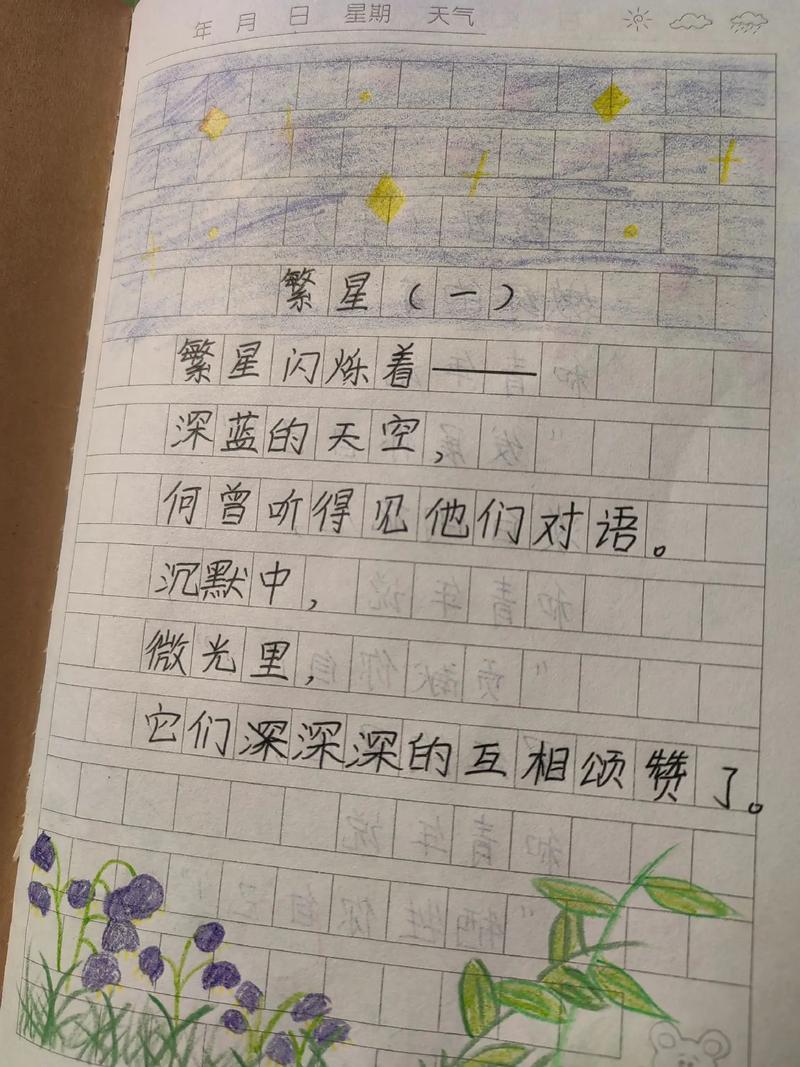 年 月 日 星期 天气
繁星（一）
繁星闪烁着——
深蓝的天空，
何曾听得见他们对语。
沉默中，
微光里，
它们深深深的互相颂赞了。